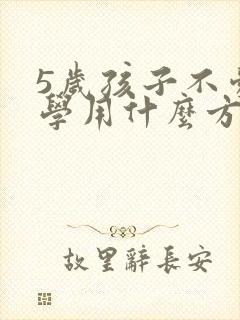 5歲孩子不
學用什麼方
故里辭長安